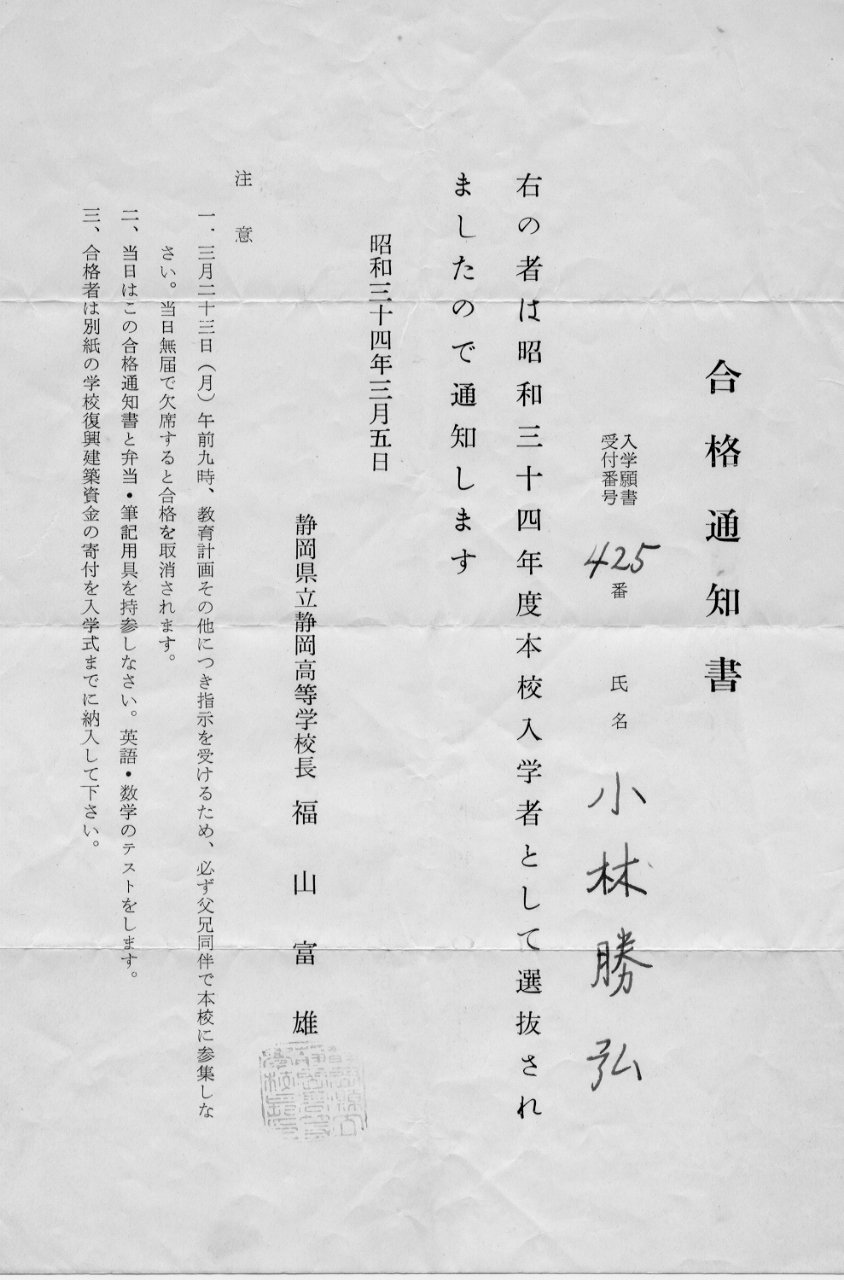 合格通知書
入学願書
受付番号
425番 氏名 小林勝弘
右の者は昭和三十四年度本校入学者として選抜され
ましたので通知します
昭和三十四年三月五日
静岡県立静岡高等学校長 福山富雄
注意
一．三月二十三日（月）午前九時、教育計画その他につき指示を受けるため、必ず父兄同伴で本校に参集しな
さい。当日無届で欠席すると合格を取消されます。
二、当日はこの合格通知書と弁当・筆記用具を持参しなさい。英語・数学のテストをします。
三、合格者は別紙の学校復興建築資金の寄付を入学式までに納入して下さい。